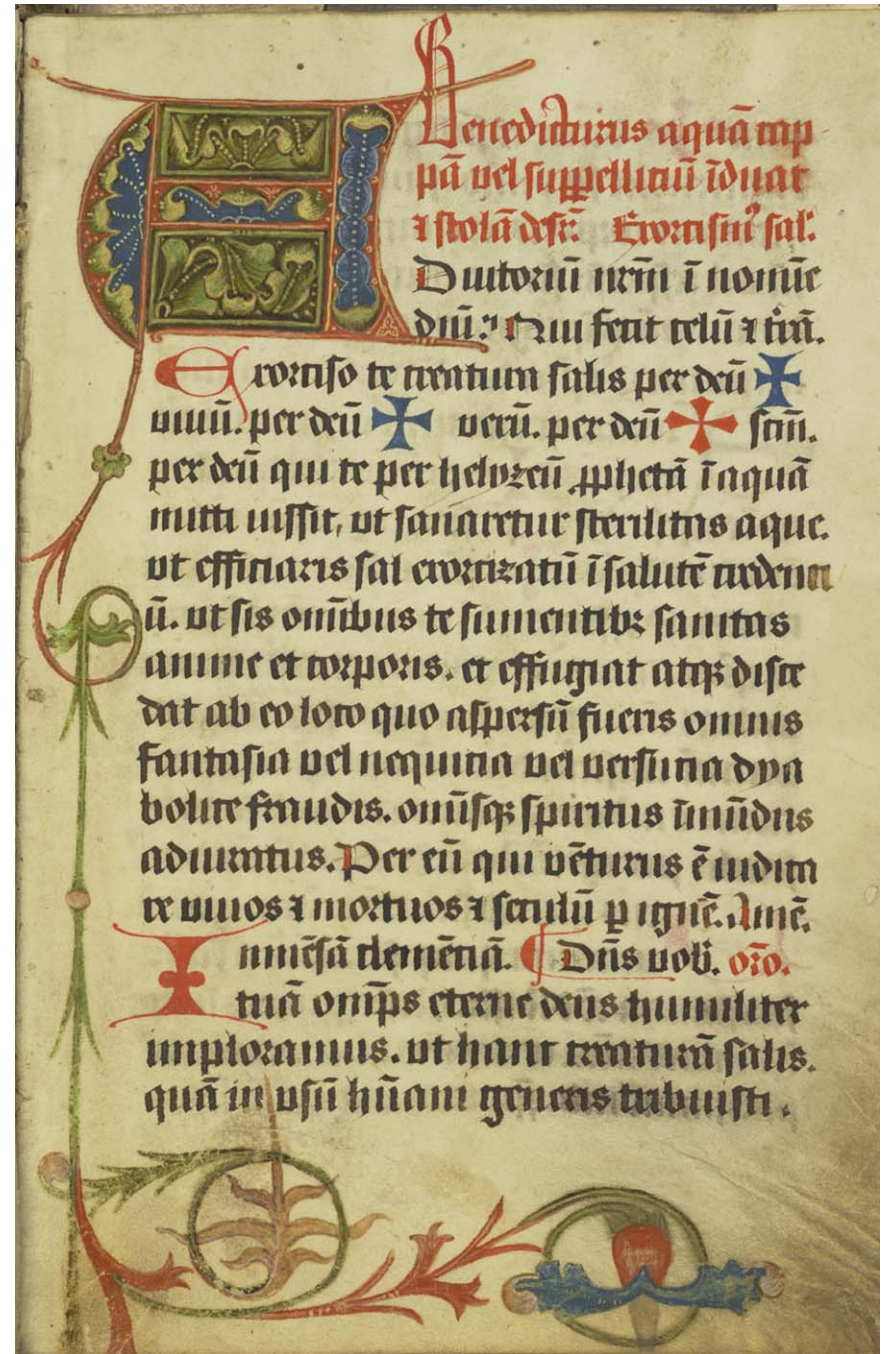 Benedicturus aquā cap
pā vel suppelliciū īduat
⁊ stolā desr̄. Exorcism⁹ sal'.
Adiutoriū nrm̄ ī nomīe
dn̄i. Qui fecit celū ⁊ t'rā.
Exorciso te creatura salis per deū ✠
uiuū. per deū ✠ verū. per deū ✠ scm̄.
per deū qui te per helyzeū ꝓphetā ī aquā
mitti iussit, ut sanaretur sterilitas aque.
ut efficiaris sal exorcizatū ī salutē credenti
ū. ut sis om̄ibus te sumentibꝫ sanitas
anime et corporis. et effugiat atqꝫ disce
dat ab eo loco quo aspersū fueris omnis
fantasia vel nequicia vel versucia dya
bolice fraudis. om̄isqꝫ spiritus īmūdus
adiuratus. Per eū qui vēturus ē iudica
re uiuos ⁊ mortuos ⁊ seculū ꝑ ignē. Amē.
Inmēsā clemēciā. Dn̄s vob'. oro.
tuā omp̄s eterne deus humiliter
imploramus. ut hanc creaturā salis.
quā in usū hūani generis tribuisti.